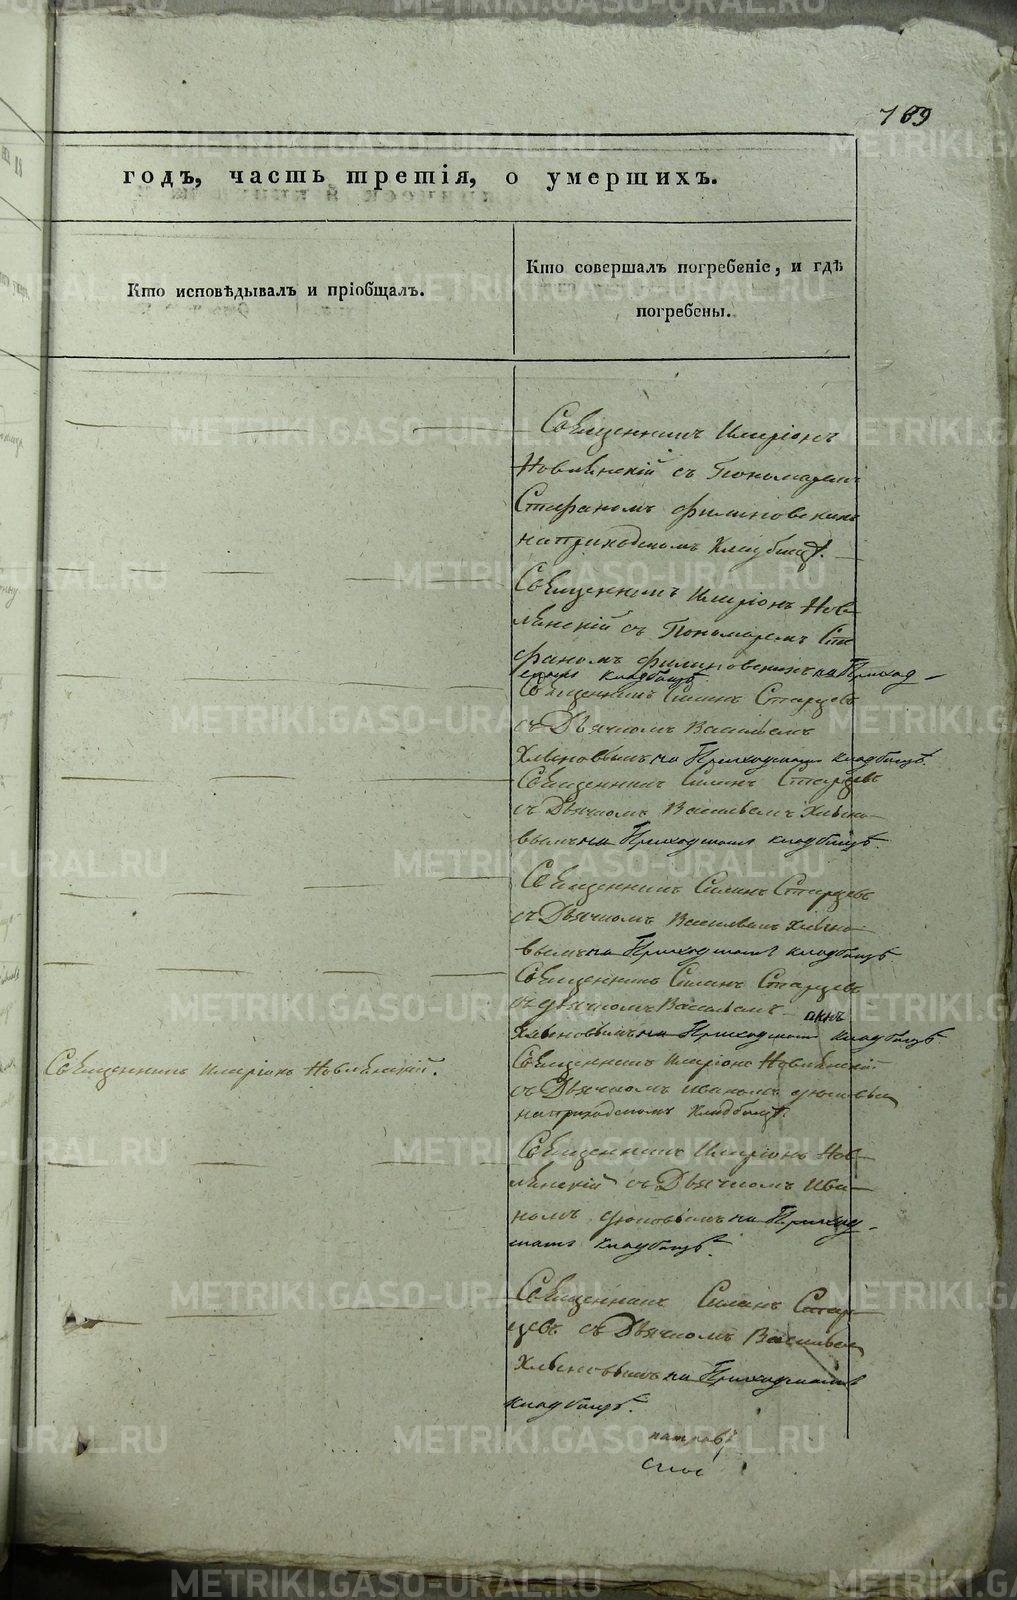 169
годъ, часть третія, о умершихъ.
Кто исповѣдывалъ и пріобщалъ.
Кто совершалъ погребеніе, и гдѣ
погребены.
Священникъ Иларіонъ
Новлянскій съ Пономаремъ
Стефаномъ Филиновскимъ
на приходскомъ Кладбищѣ.
Священникъ Иларіонъ Нов-
лянскій съ Пономаремъ Сте
фаномъ Филиновскимъ на Приход-
скомъ кладбищѣ
Священникъ Симонъ Старцевъ
съ Дьячкомъ Васильемъ
Хляновымъ на Приходскомъ кладбищѣ.
Священникъ Симонъ Старцевъ
съ Дьячкомъ Васильемъ Хляно-
вымъ на Приходскомъ кладбищѣ.
Священникъ Симонъ Старцевъ
съ Дьячкомъ Васильемъ Хляно-
вымъ на Приходскомъ кладбищѣ.
Священникъ Симонъ Старцевъ
съ дьячкомъ Васильемъ
Хляновымъ на Приходскомъ кладбищѣ.
Священникъ Иларіонъ Новлянскій.
Священникъ Иларіонъ Новлянскій
съ Дьячкомъ Иваномъ
на приходскомъ Кладбищѣ.
Священникъ Иларіонъ Нов-
лянскій съ Дьячкомъ Ива-
номъ на Приход-
скомъ кладбищѣ.
Священникъ Симонъ Стар-
цевъ съ Дьячкомъ Васильемъ
Хляновымъ на Приходскомъ
кладбищѣ.
METRIKI.GASO-URAL.RU